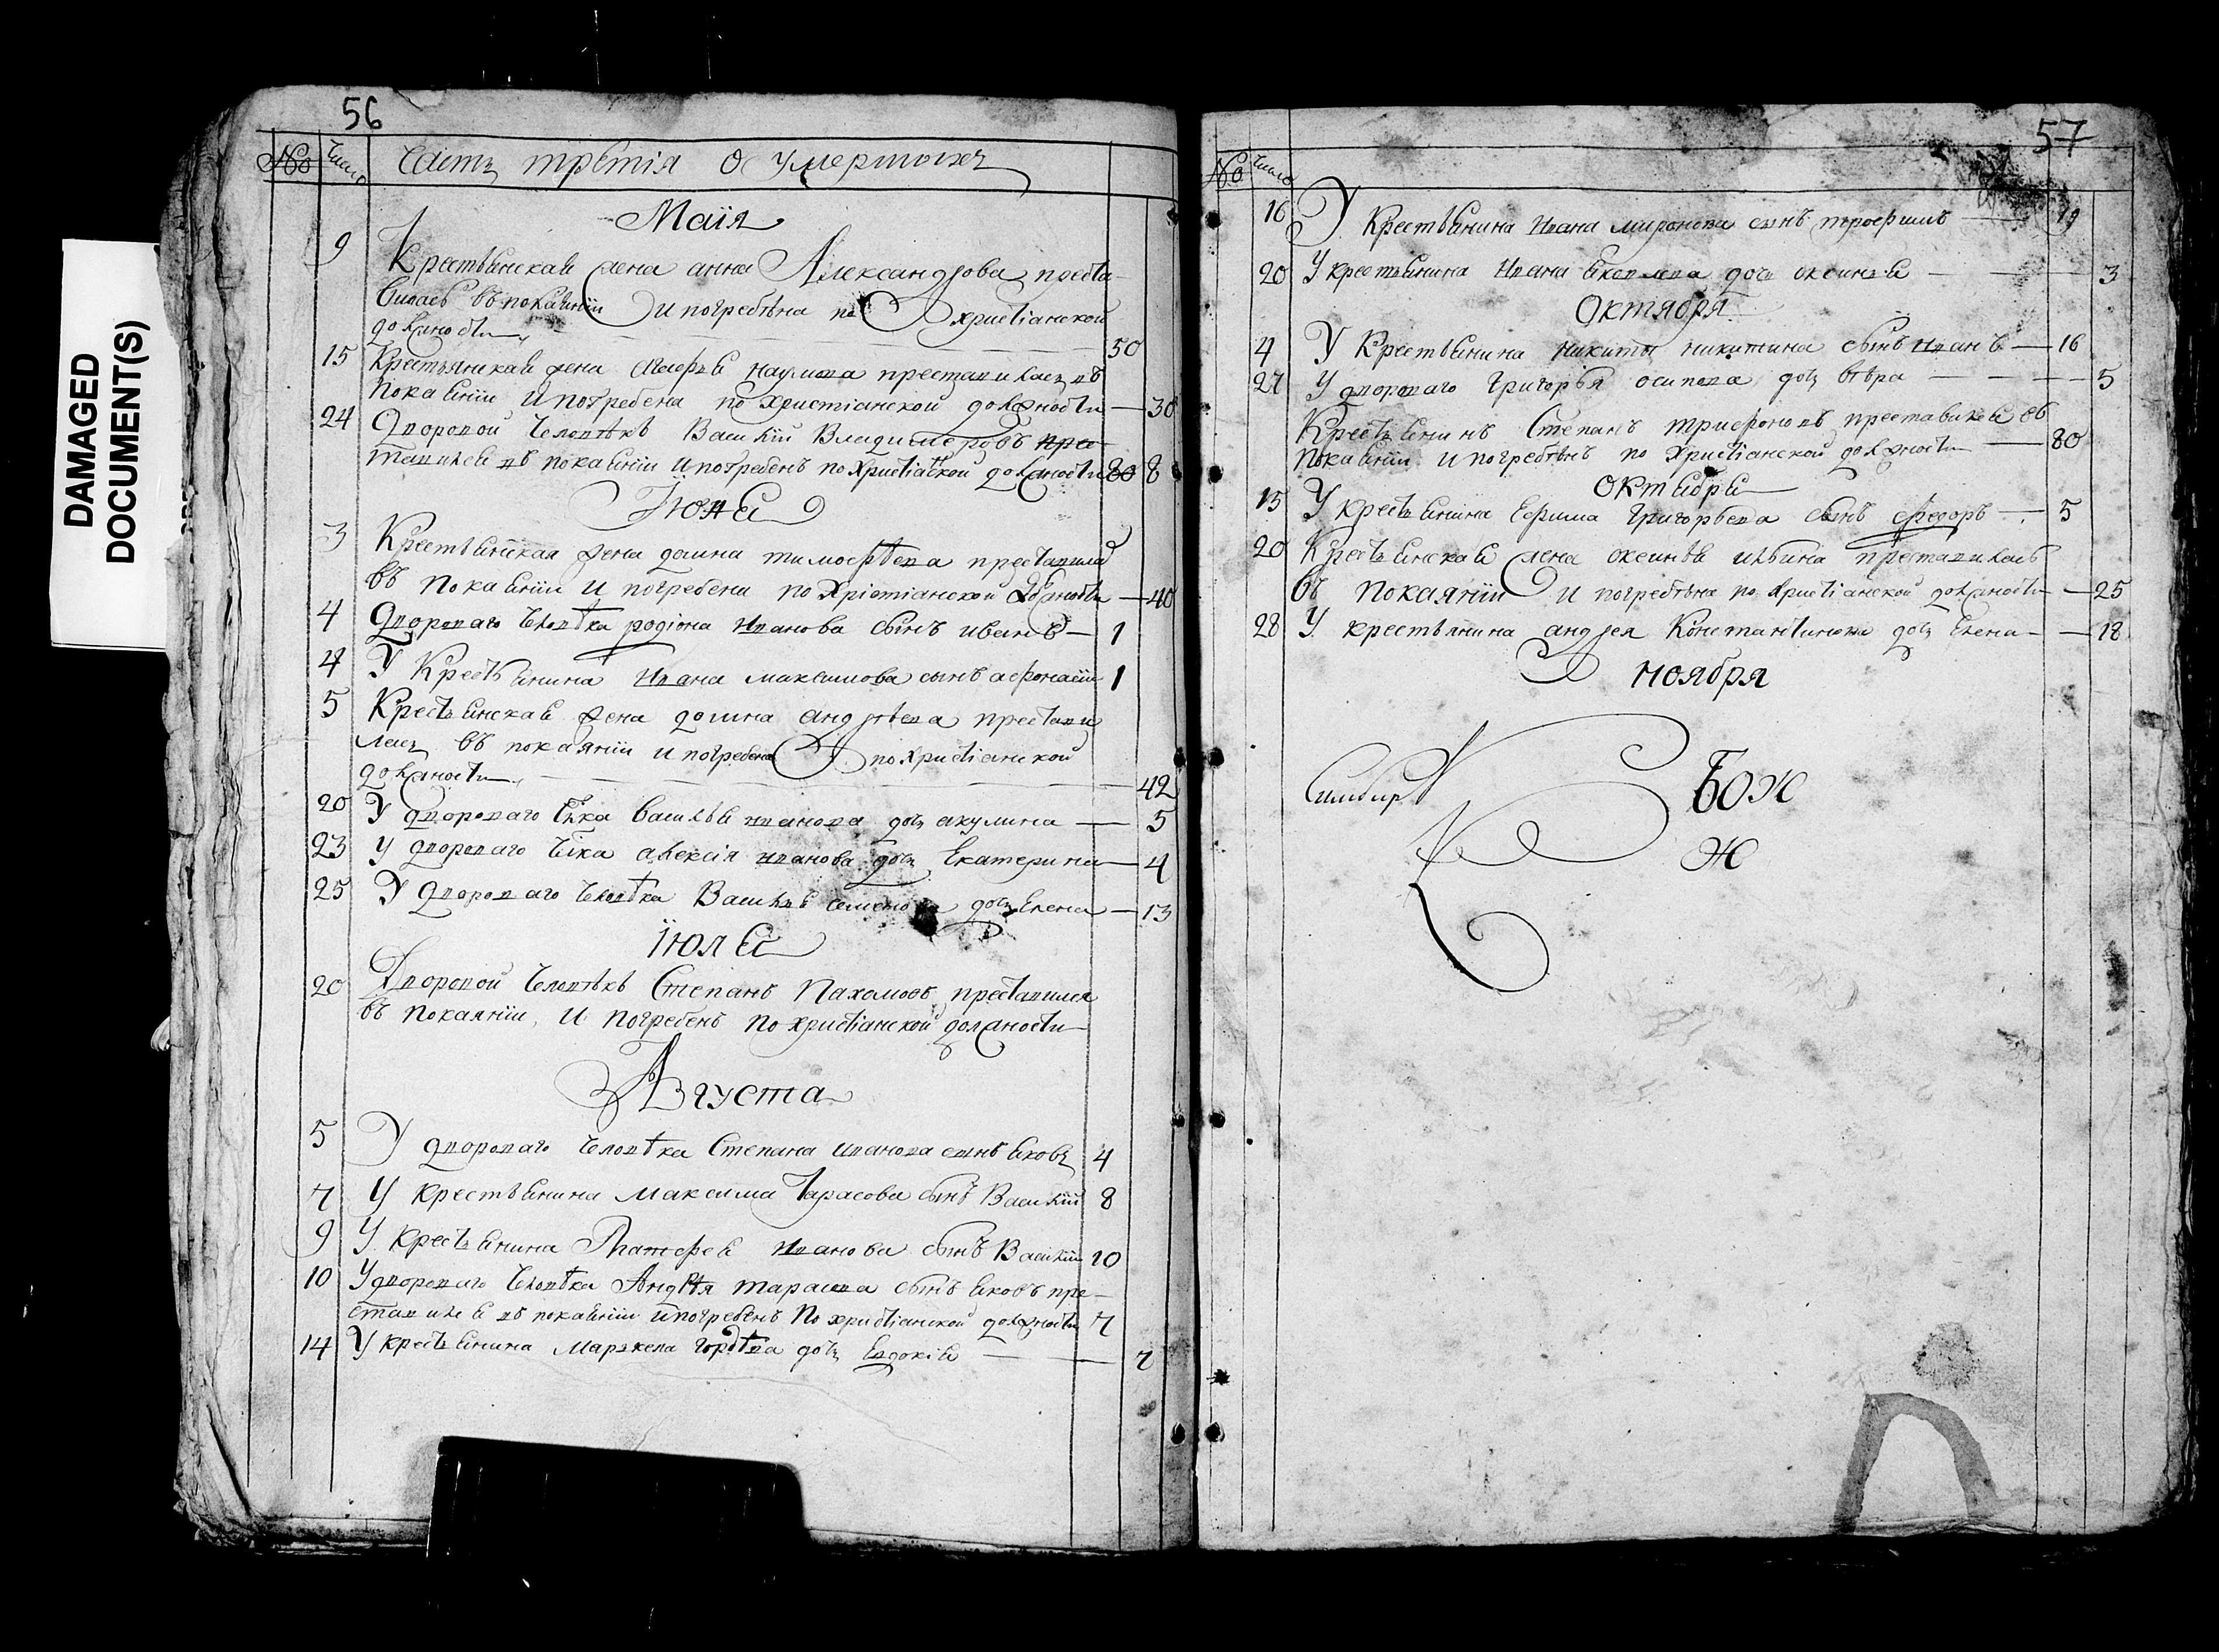 DAMAGED
DOCUMENT(S)
56
№ Число Часть третiя О умершыхъ
Маiя
9 Крестьянская жена анна Александрова преста
вилась въ покаянiи И погребѣна по христiанской
должности 50
15 Крестьянская жена наумова преставилась въ
покаянiи И погребена по христiанской должности 30
24 Дворовой человѣкъ Василiй Владимеровъ пре
ставился въ покаянiи И погребенъ по христiаской должности 80 8
Iюня
3 Крестьянская жена домна тимофѣева преставилас
въ покаянiи И погребена по Хрiстiанской должности 40
4 Дворového человѣка родiона Иванова сынъ иванъ 1
4 У Крестьянина Ивана максимова сынъ афонасiй 1
5 Крестьянская жена домна андрѣева престави
лась въ покаянiи И погребена по христiанской
должности 42
20 У дворового чѣка Василья иванова дочь акулина 5
23 У дворового чѣка алексiя иванова дочь Екатерина 4
25 У дворового человѣка Василья семенова дочь Елена 13
Iюля
20 Дворовой человѣкъ Степанъ Пахомовъ преставился
въ покаянiи, И погребенъ по христiанской должности
Августа
5 У двороваго человѣка Степана иванова сынъ яковъ 4
7 У крестьянина Максима Тарасова сынъ Василiй 8
9 У крестьянина Матфея Иванова сынъ Василiй 10
10 У двороваго человѣка Андрѣя тарасова сынъ яковъ пре-
ставился въ покаянiи и погребенъ По христiанской должности 7
14 У крестьянина дочь Евдокiя 7
57
№ Число
16 У Крестьянина Ивана миронова сынъ трофимъ 19
20 У крестьянина Ивана яковлева дочь оксинья 3
Октября
4 У Крестьянина никиты никитина сынъ иванъ 16
27 У двороваго Григорья осипова дочь вѣра 5
Крестьянинъ Степанъ трифоновъ преставился въ
покаянiи И погребѣнъ по Христiанской должности 80
Октября
15 У крестьянина Ефима Григорьева сынъ федоръ 5
20 Крестьянская жена оксинья ильина преставилась
въ покаянiи И погребѣна по христiанской должности 25
28 У крестьянина андрея Константинова дочь Елена 18
ноября
Симбир Бож
ж